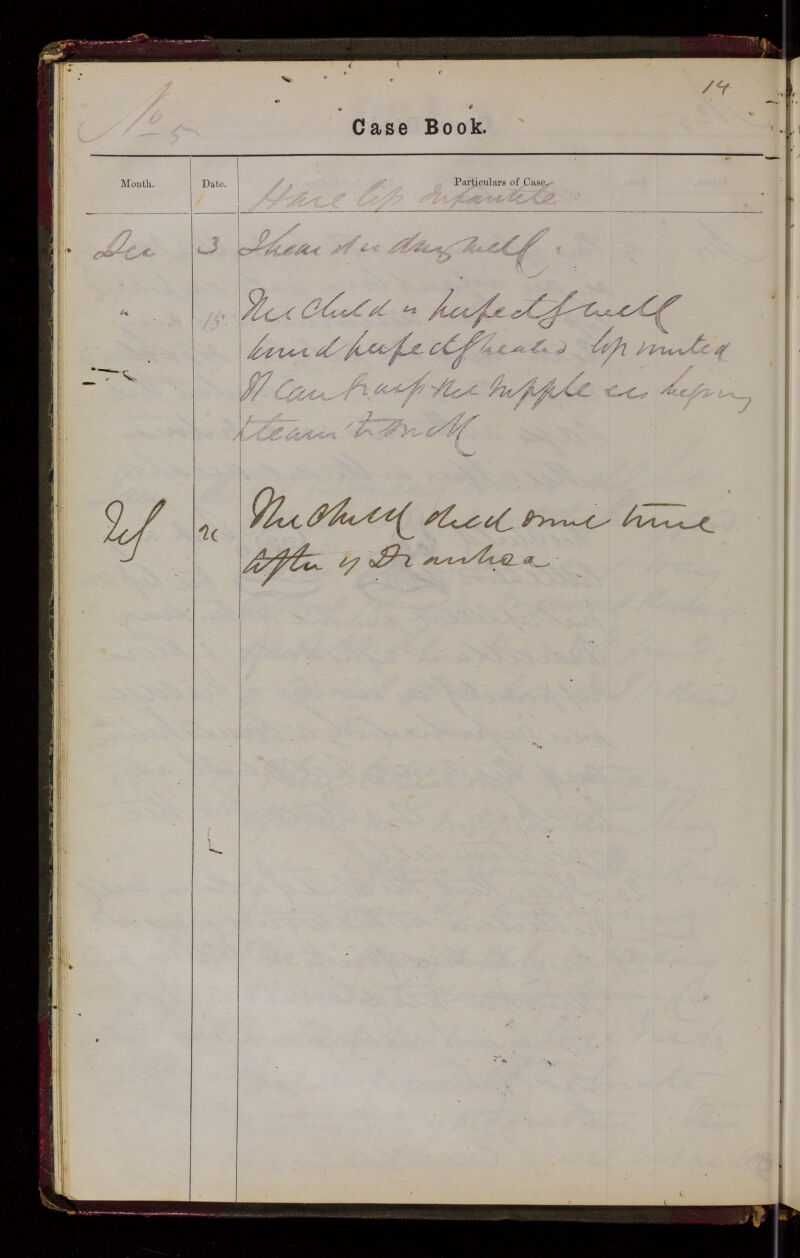 14
No 5
Case Book.
Month. Date. Particulars of Case.
Hare lip Infantile
Dec 3 I hear it is doing well.
" 18. The Child is perfectly well
wound perfectly healed lip united
It can grasp the nipple & is
to learn to suck
Feb The Child died some time
after of Diarrhoea